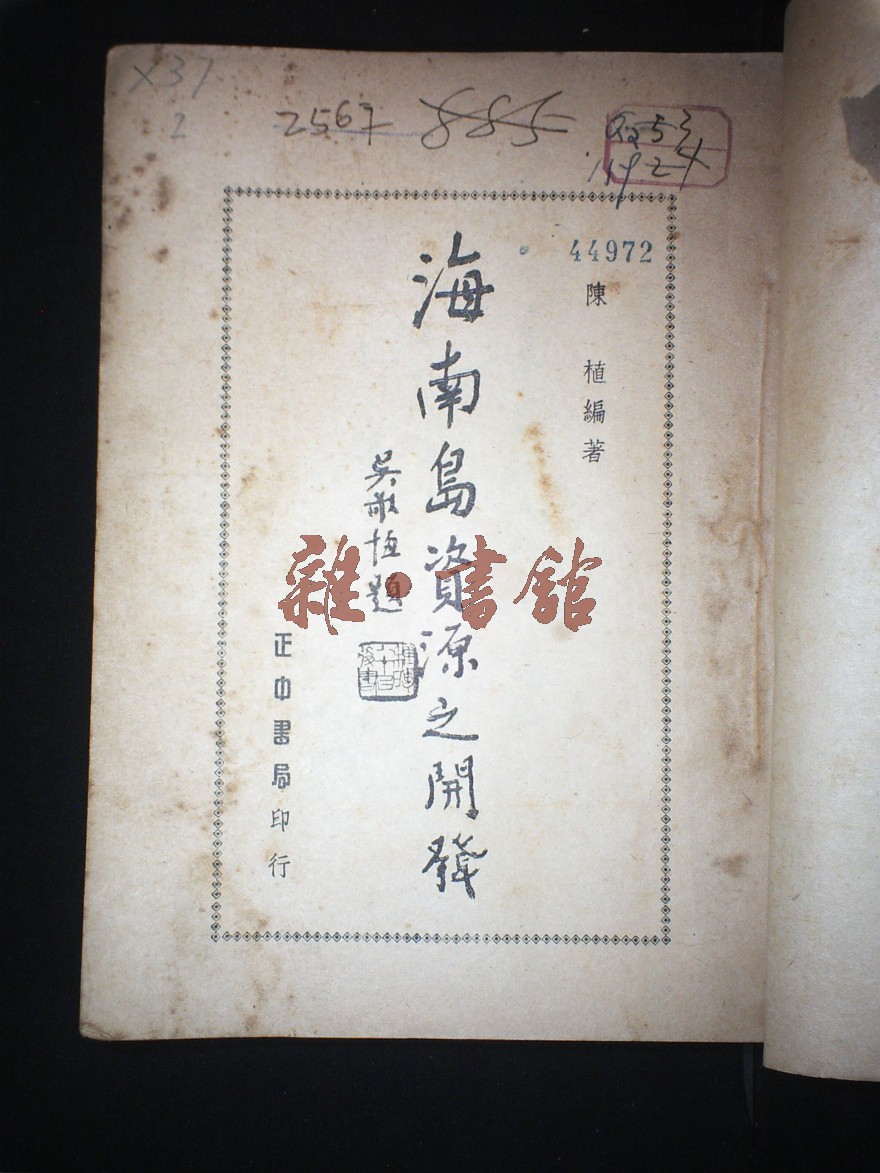 X37
2
2567 885
44972
陳 植編著
海南島資源之開發
吳敬恆題
正中書局印行
雜·書館